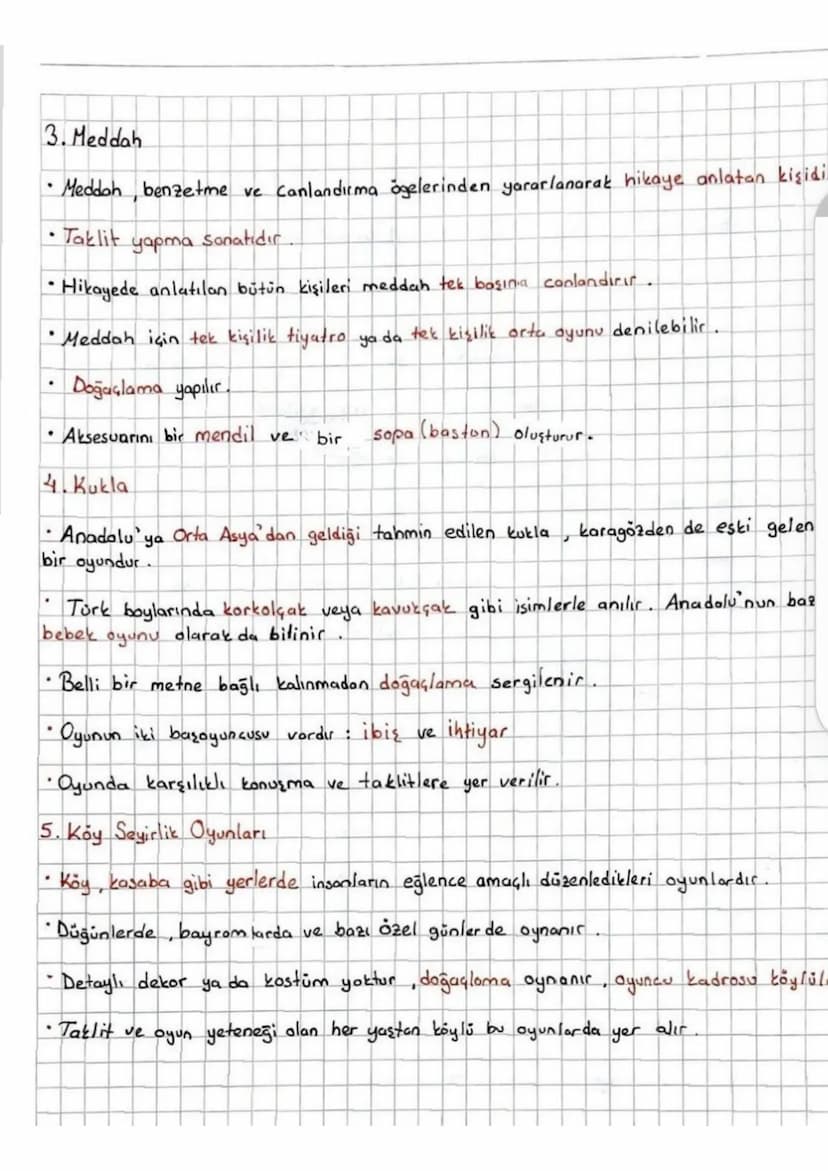 3. Meddah
• Meddah, benzetme ve canlandırma ögelerinden yararlanarak hikaye anlatan kişidi
• Taklit yapma sanatıdır.
• Hikayede anlatılan bütün kişileri meddah tek başına canlandırır.
• Meddah için tek kişilik tiyatro ya da tek kişilik orta oyunu denilebilir.
• Doğaçlama yapılır.
• Aksesuarını bir mendil ve bir sopa (baston) oluşturur.
4. Kukla
• Anadolu'ya Orta Asya'dan geldiği tahmin edilen kukla, karagözden de eski gelen
bir oyundur.
• Türk boylarında korkolçak veya kavurçak gibi isimlerle anılır. Anadolu'nun baz
bebek oyunu olarak da bilinir.
• Belli bir metne bağlı kalınmadan doğaçlama sergilenir.
• Oyunun iki başoyuncusu vardır : ibiş ve ihtiyar
• Oyunda karşılıklı konuşma ve taklitlere yer verilir.
5. Köy Seyirlik Oyunları
• Köy, kasaba gibi yerlerde insanların eğlence amaçlı düzenledikleri oyunlardır.
• Düğünlerde, bayramlarda ve bazı özel günlerde oynanır.
• Detaylı dekor ya da kostüm yoktur, doğaçlama oynanır, oyuncu kadrosu köylül
• Taklit ve oyun yeteneği olan her yaştan köylü bu oyunlarda yer alır.